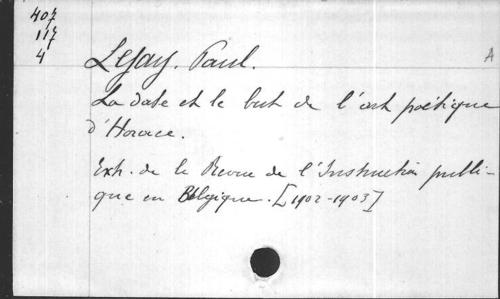 407
117
4
Lejay. Paul.
A
La date et le but de l'art poétique
d'Horace.
Extr. de la Revue de l'Instruction publi-
que en Belgique. [1902-1903]